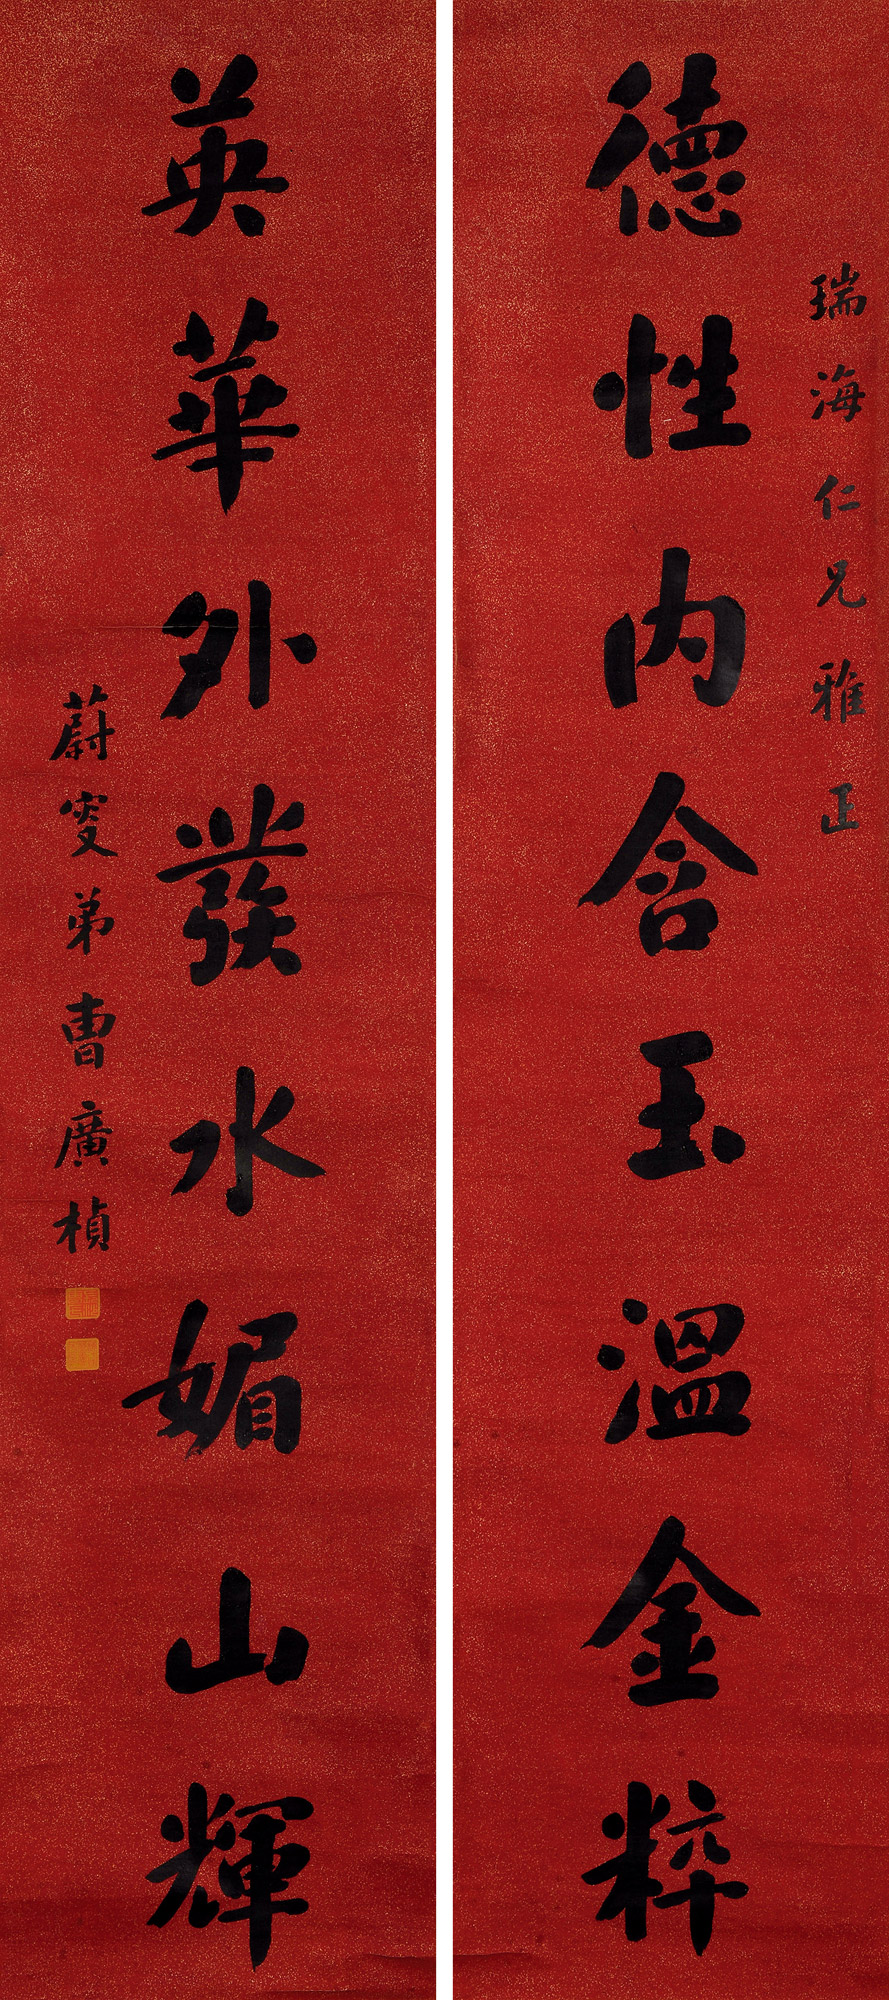 瑞海仁兄雅正
德性内含玉溫金粹
英華外發水媚山輝
蔚叟弟曹廣楨